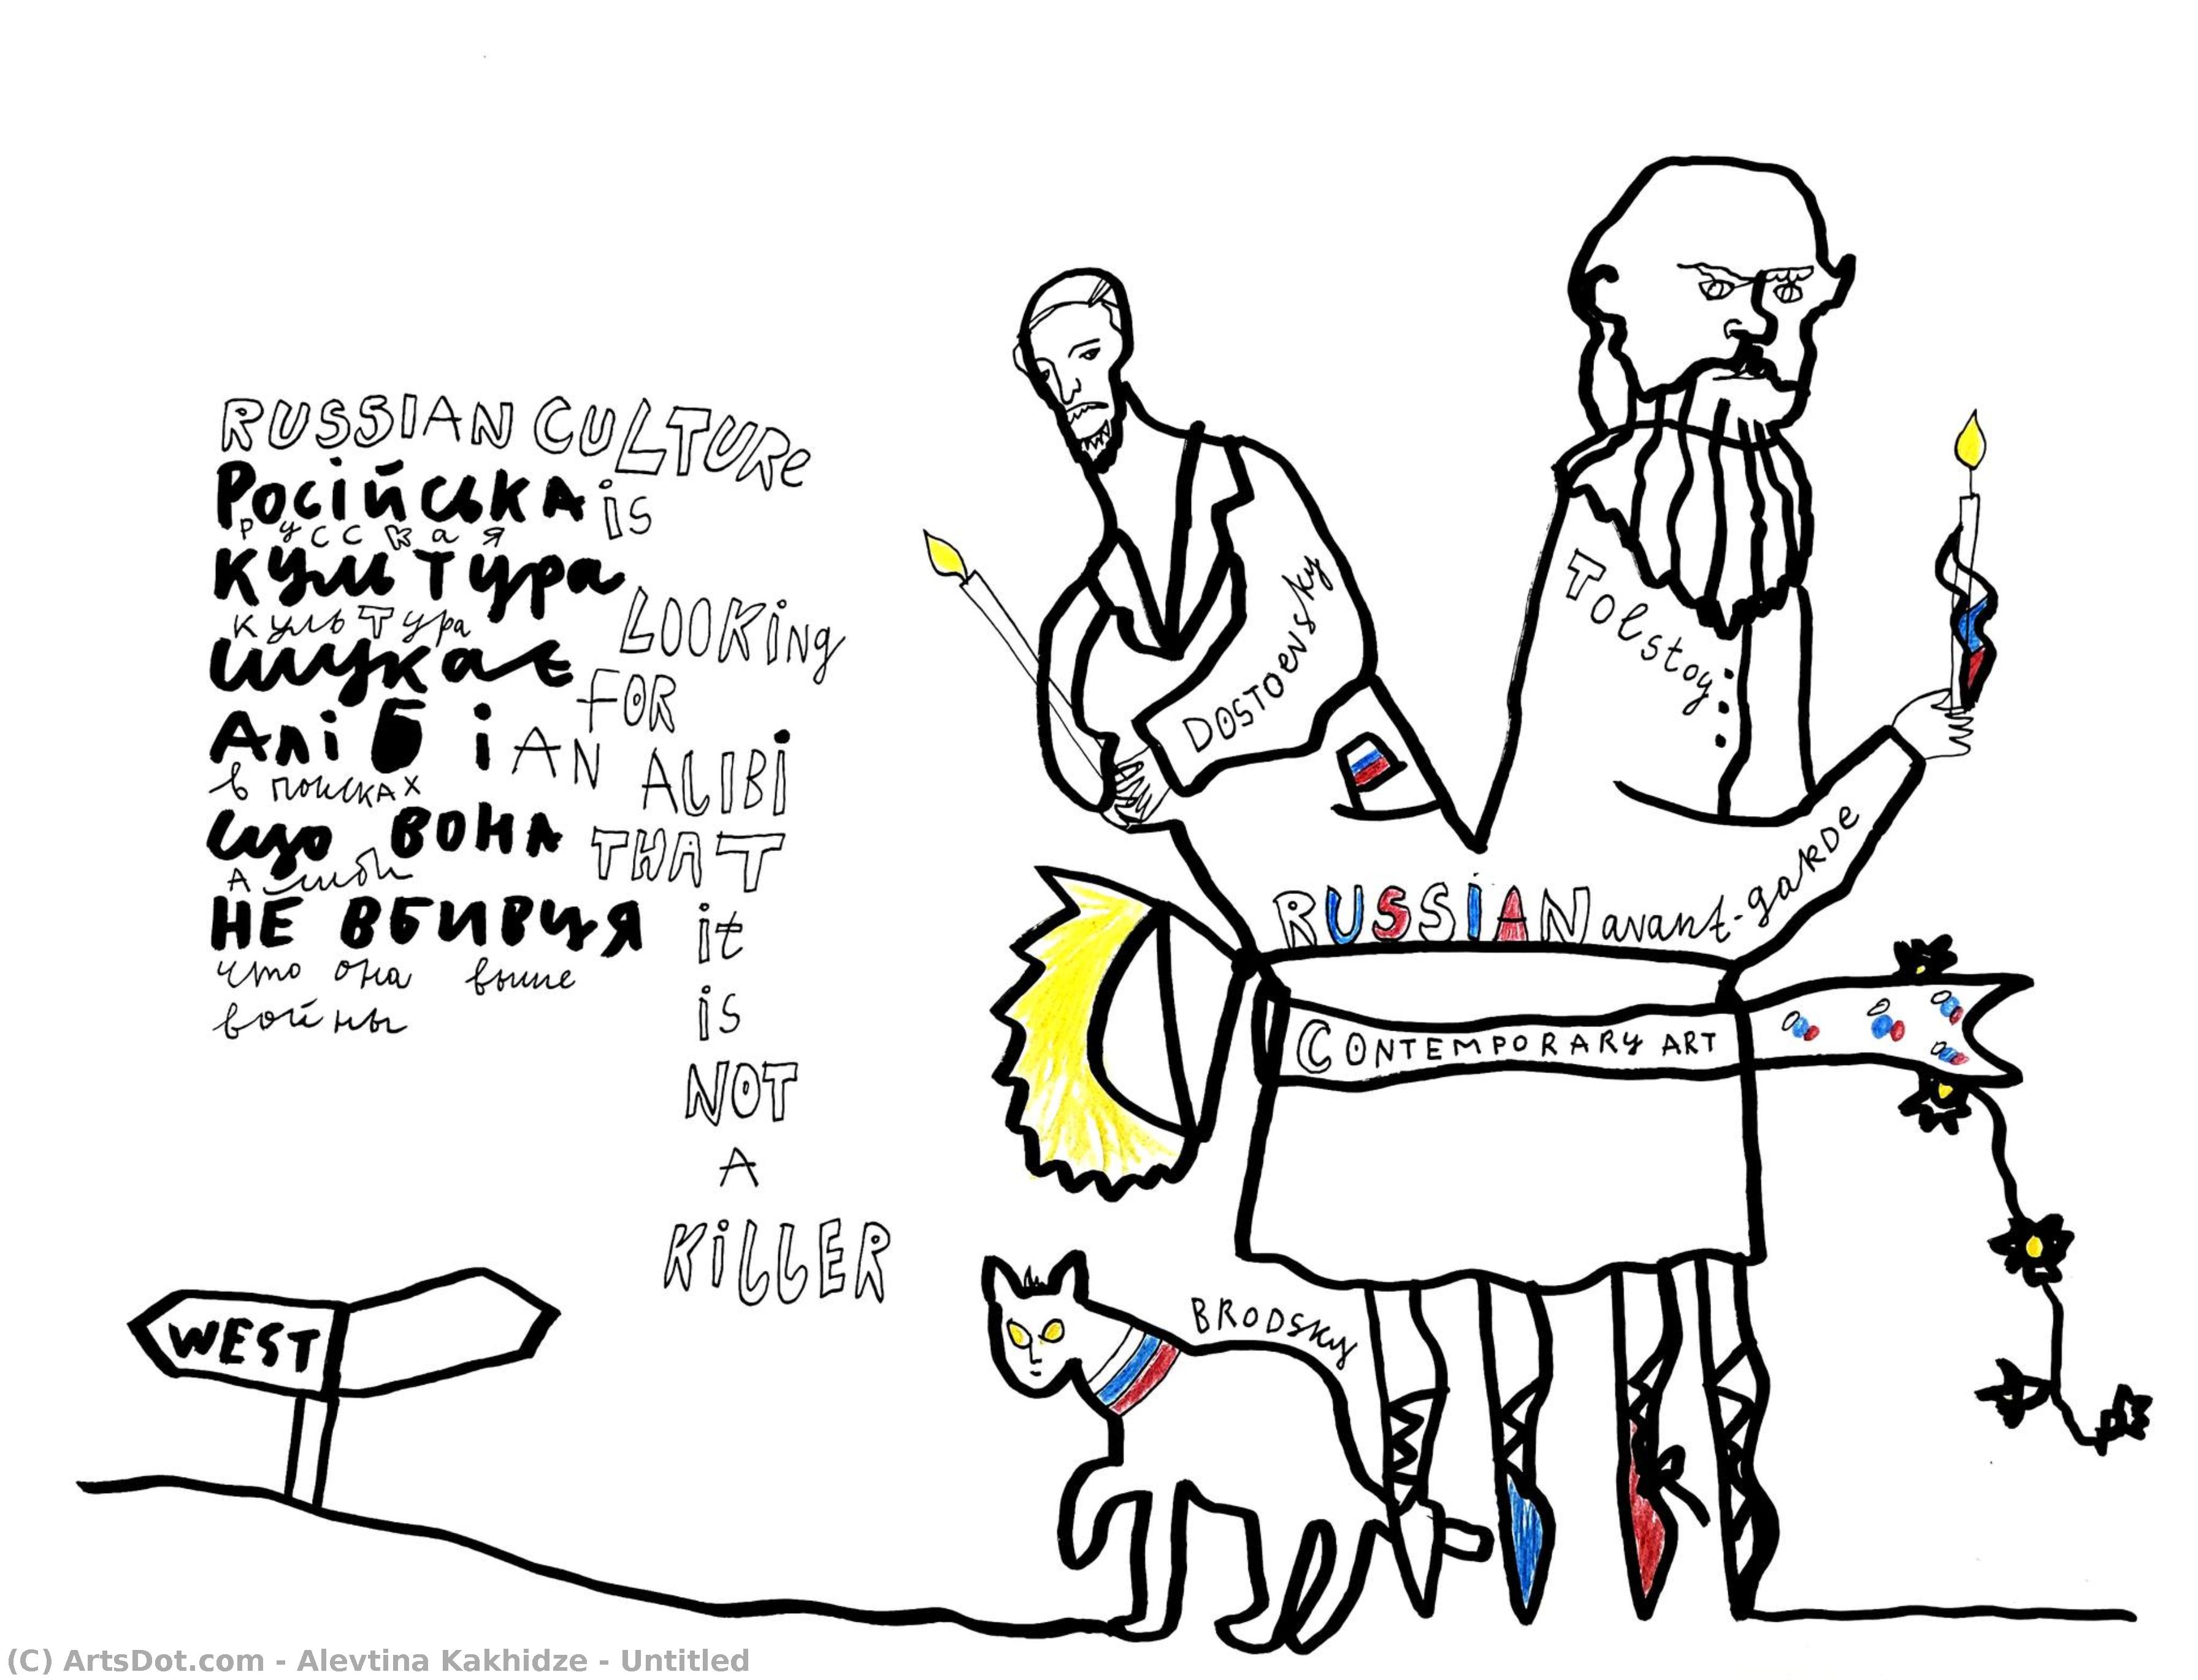 RUSSIAN CULTURE
Російська is
русская
культура
культура
LOOKING
шукає
FOR
Алібі AN ALIBI
в поисках
що вона THAT
Алиби
НЕ ВБИВЦЯ it
что она выше
войны
is
NOT
A
KILLER
DOSTOEVSKY
Tolstoy
RUSSIAN avant-garde
CONTEMPORARY ART
BRODSKY
WEST
(C) ArtsDot.com - Alevtina Kakhidze - Untitled